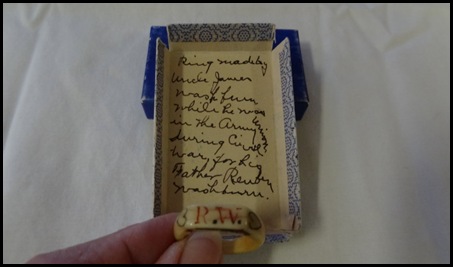 Ring made by
Uncle James
Washburn
while he was
in the Army
during Civil
War, for his
Father Reuben
Washburn.
R.W.